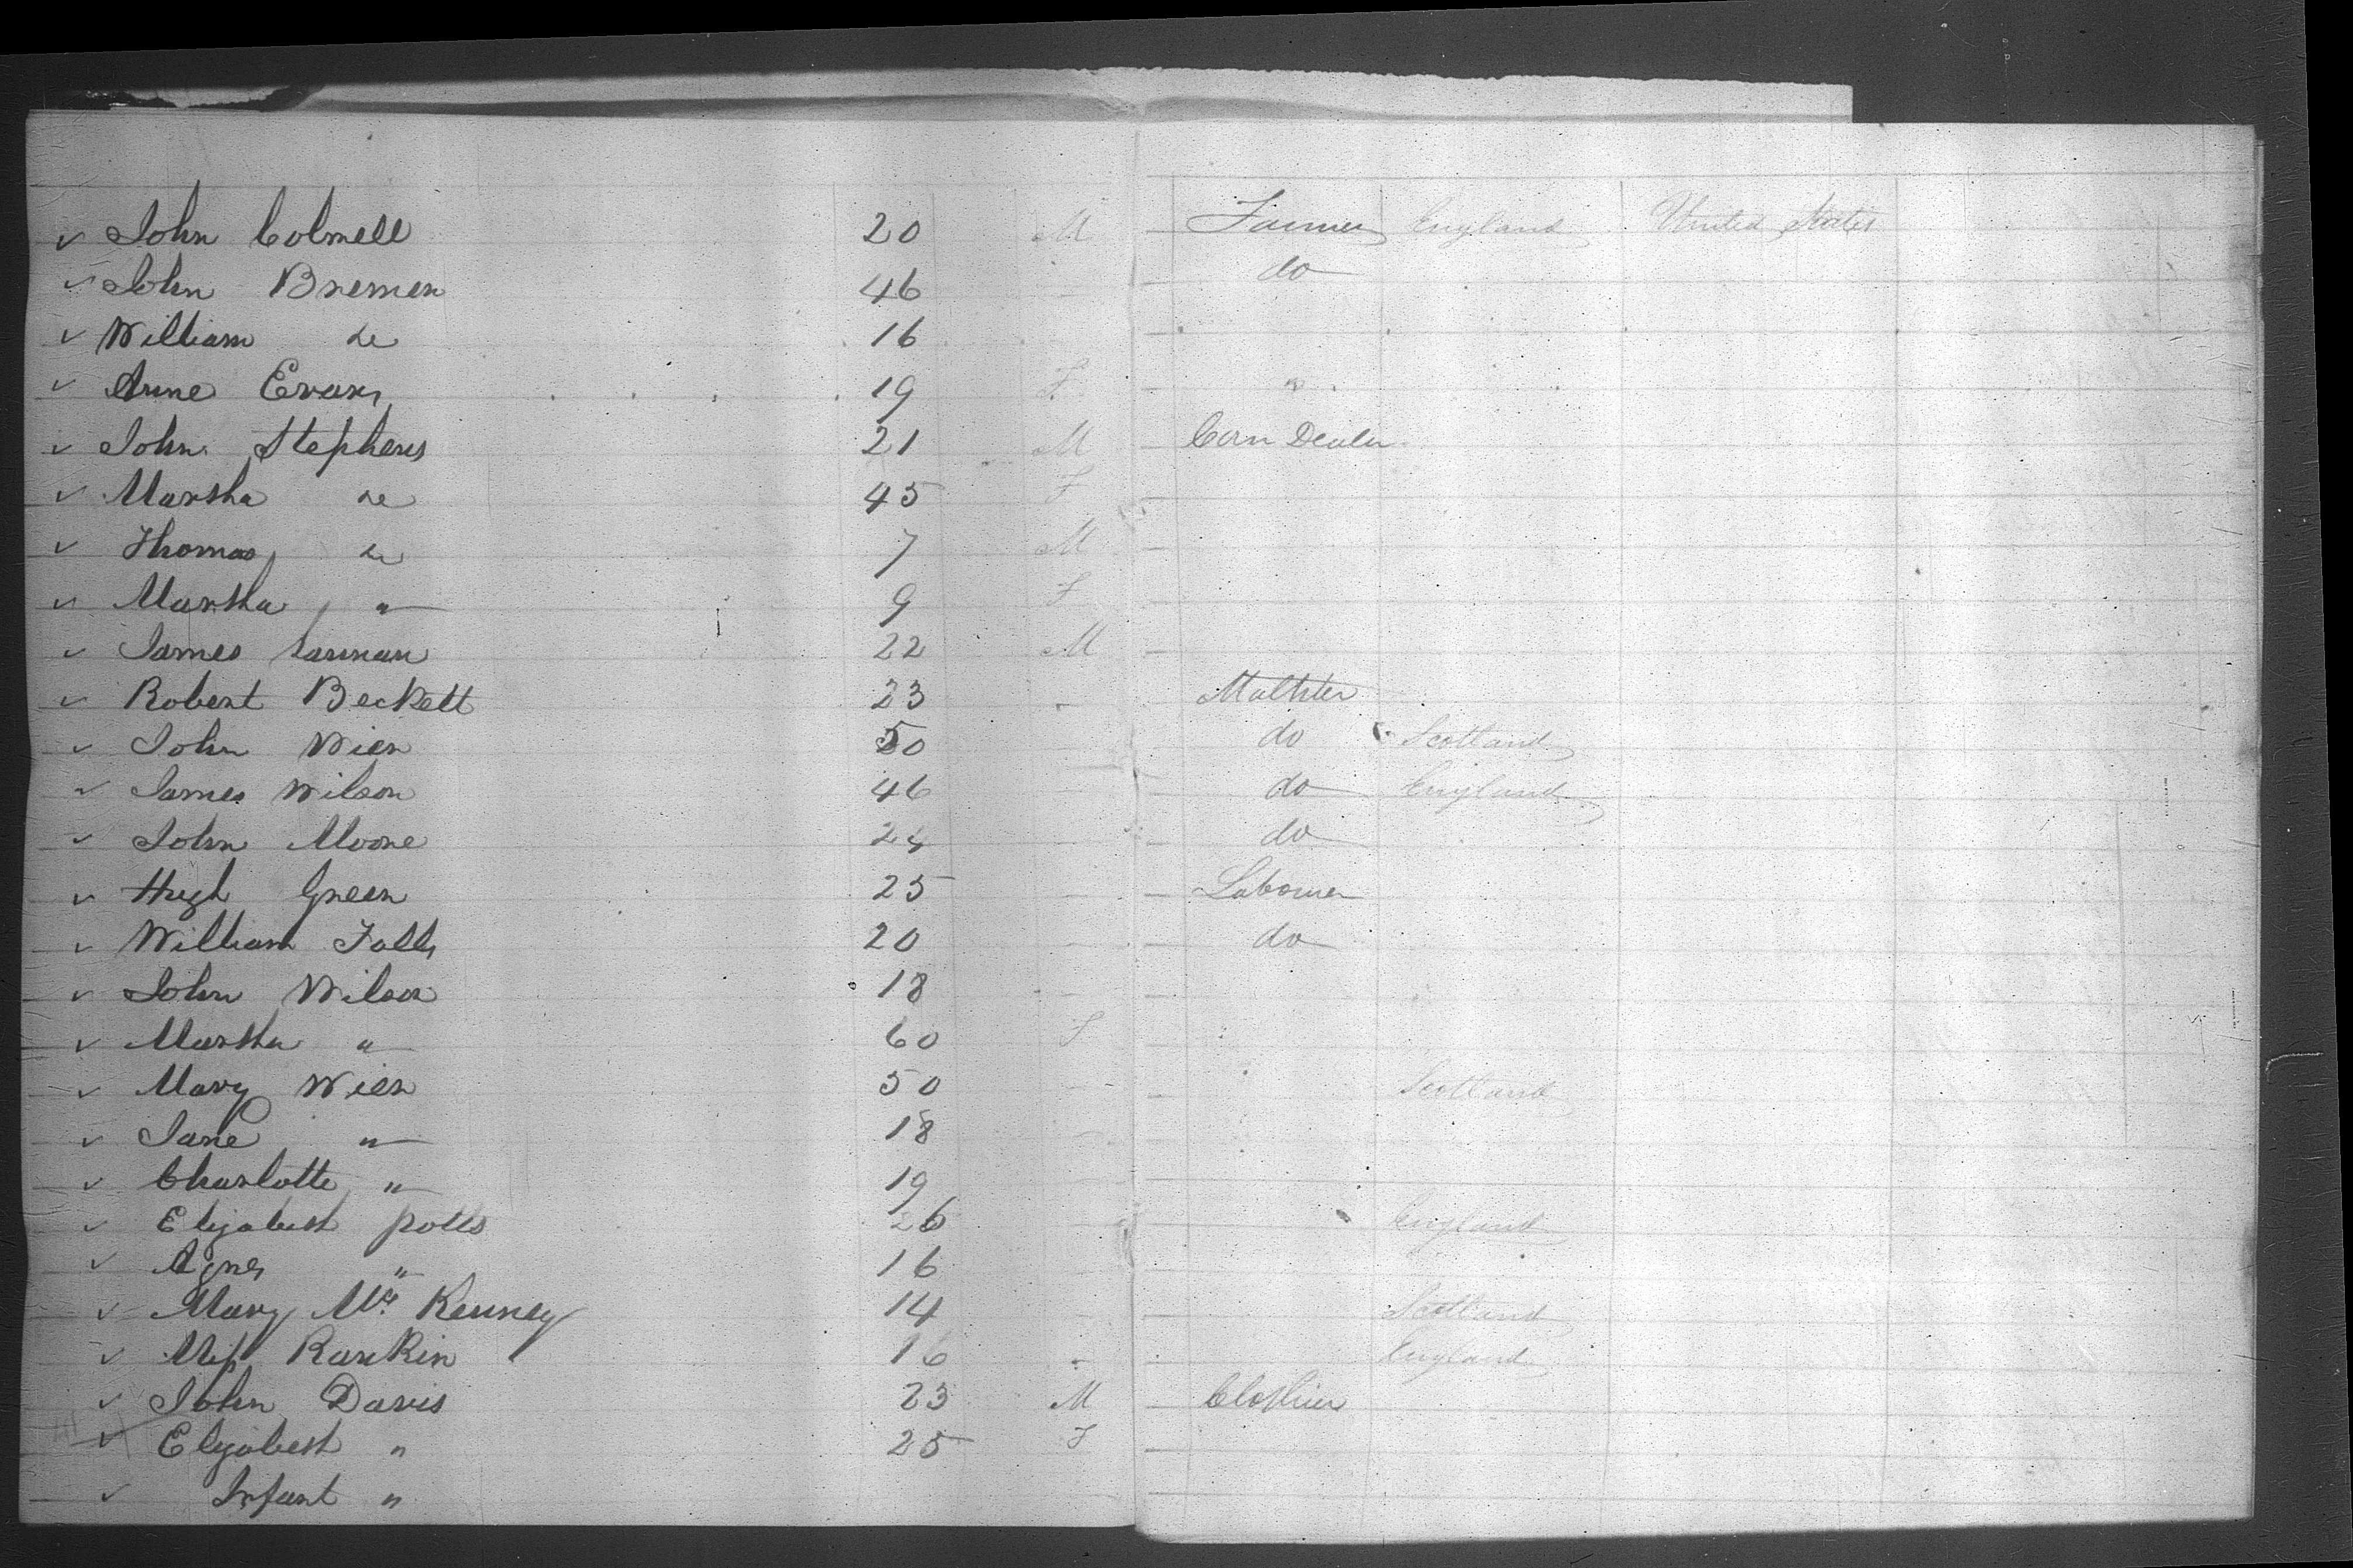 John Colmell 20 M Farmer England United States
John Bremen 46 do
William do 16
Anne Evans 19 F "
John Stephens 21 M Corn Dealer
Martha do 45 F
Thomas do 7 M
Martha " 9 F
James 22 M
Robert Beckett 23 Malster
John Wier 50 do Scotland
James Wilson 46 do England
John Moore 24 do
Hugh Green 25 Labourer
William Falls 20 do
John Wilson 18
Martha " 60 F
Mary Wier 50 Scotland
Jane " 18
Charlotte " 19
Elizabeth potts 26 England
Agnes " 16
Mary Mc Kenney 14 Scotland
Miss Rankin 16 England
John Davis 23 M Clothier
Elizabeth " 25 F
Infant "